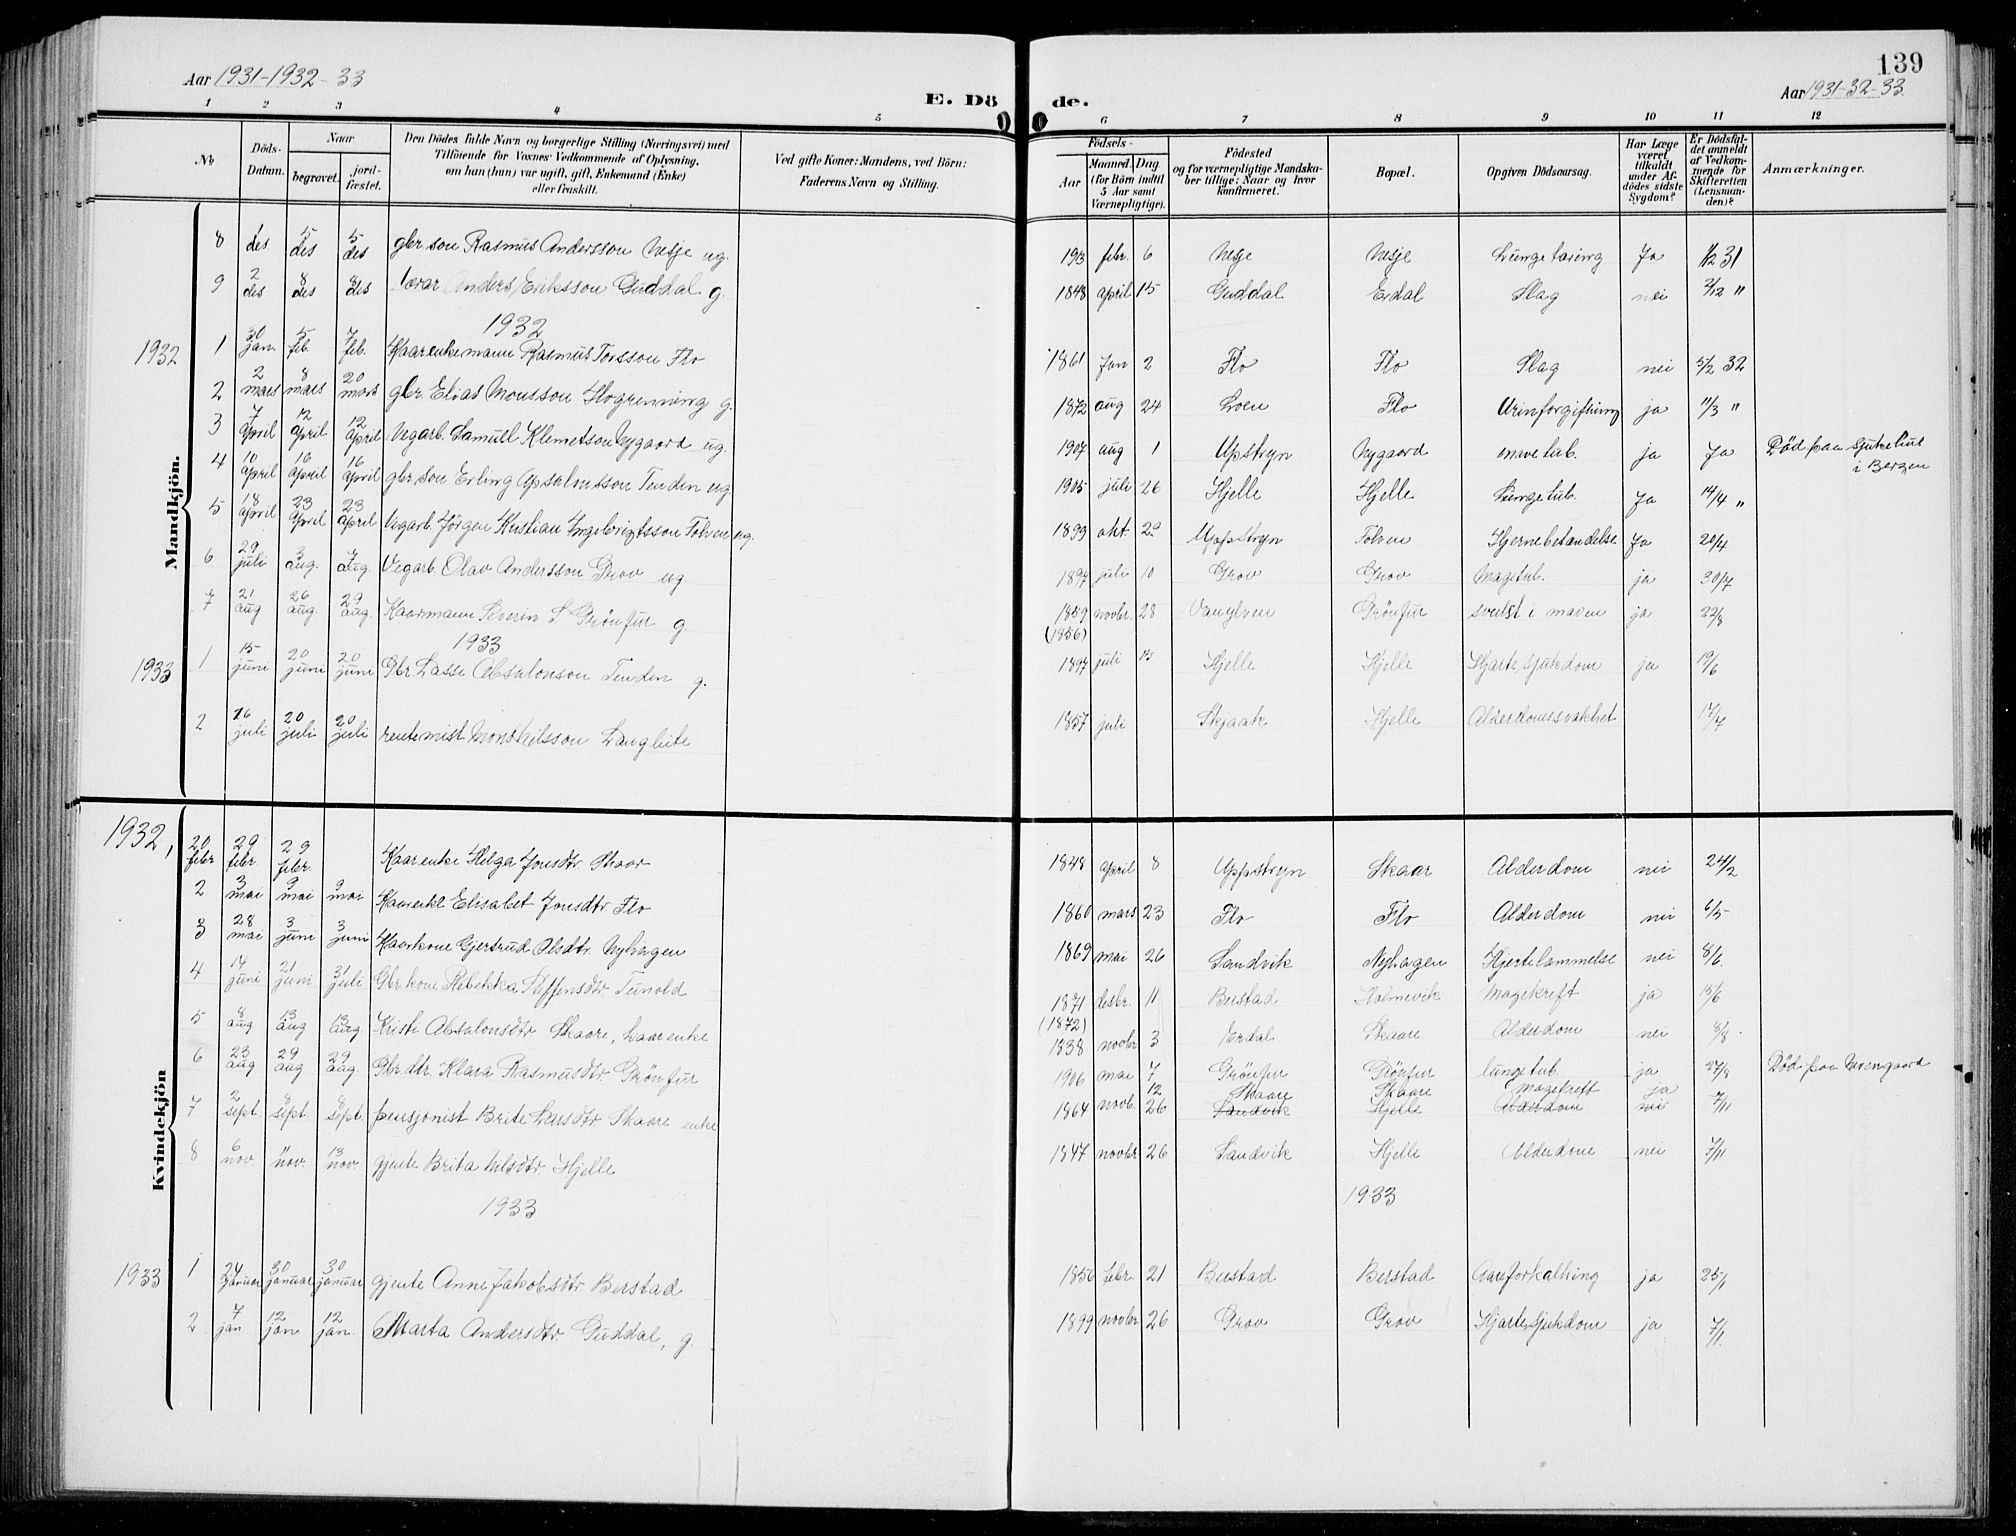 139
Aar 1931-1932-33
Aar 1931-32-33.
E. Dö de.
1 2 3 4 5 6 7 8 9 10 11 12
No
Döds-Datum.
Naar
begravet.
jordfæstet.
Den Dödes fulde Navn og borgerlige Stilling (Næringsvei) med
Tilföiende for Voxnes Vedkommende af Oplysning,
om han (hun) var ugift, gift, Enkemand (Enke)
eller fraskilt.
Ved gifte Koner: Mandens, ved Börn:
Faderens Navn og Stilling.
Födsels-
Aar
Maaned. Dag
(for Börn indtil
5 Aar samt
Værnepligtige).
Födested
og for værnepligtige Mandskaber tillige: Naar og hvor
konfirmeret.
Bopæl.
Opgiven Dödsaarsag.
Har Læge
været
tilkaldt
under Afdödes sidste
Sygdom?
Er Dödsfaldet anmeldt
af Vedkommende for
Skifteretten
(Lensmanden)?
Anmærkninger.
Mandkjön.
8 1 des 5 des 5 des gbr son Rasmus Andersson Nesje ug. 1913 febr. 6 Nesje Nesje Lungetæring Ja 1/12 31
9 2 des 8 des 8 des Anders Eriksson Guddal g. 1848 april 15 Guddal Erdal Slag nei 3/12 "
1932
1932 1 30 jan. 5 feb. 7 feb. Kaarenkemann Rasmus Torsson Flo 1861 Jan 2 Flo Flo Slag nei 5/2 32
2 2 mars 8 mars 20 mars gbr. Elias Monsson Skogrenning g. 1872 aug 24 Loen Flo Urinforgiftning ja 11/3 "
3 7 april 12 april 12 april Vegarb. Samuel Klemetson Nygaard ug. 1907 aug 1 Upstryn Nygaard mavetub. ja Ja Död paa sjukehus
i Bergen
4 10 april 16 april 16 april gbr. son Erling Apsalonsson Tenden ug. 1905 juli 26 Hjelle Hjelle Lungetub. Ja 14/4 "
5 18 april 23 april 23 april Vegarb. Jörgen Kristian Ingebrigtsson Tolven ug. 1899 okt. 20 Uppstryn Tolven Hjernebetændelse Ja 20/4
6 29 juli 3 aug. 7 aug. Vegarb. Olav Andersson Grov ug. 1897 juli 10 Grov Grov Magetub. ja 30/7
7 21 aug 26 aug. 29 aug. Kaarmann Severin S Grönfur g. 1859 novbr. 28 Vanylven Grönfur svulst i maven ja 22/8
(1856)
1933
1933 1 15 juni 20 juni 20 juni Gbr. Lasse Absalonson Tenden g. 1897 juli 15 Hjelle Hjelle Hjartesjukdom ja 19/6
2 16 juli 20 juli 20 juli rentenist Mons Nilsson Langlute 1857 juli Skjaak Hjelle Alderdomssvakhet 17/7
Kvindekjön
1932, 20 febr 29 febr. 29 febr. Kaarenke Helga Jonsdtr Skaar 1848 april 8 Uppstryn Skaar Alderdom nei 24/2
2 3 mai 9 mai 9 mai Kaarenke Elisabet Jonsdtr Flo 1860 mars 23 Flo Flo Alderdom nei 6/5
3 28 mai 3 juni 3 juni Kaarkone Gjertrud Olsdtr. Nyhagen 1869 mai 26 Sandvik Nyhagen Hjertelammelse nei 8/6
4 14 juni 21 juni 31 juli Gbr. kone Rebekka Steffensdtr. Tunold 1871 desbr. 11 Berstad Holmevik Magekreft ja 15/6
(1872)
5 8 aug 13 aug 13 aug. Kristi Absalonsdtr Skaare, kaarenke 1838 novbr 3 Erdal Skaare Alderdom nei 8/8
6 23 aug 29 aug 29 aug. Gbr. dtr. Klara Rasmusdtr. Grönfur 1906 mai 7 Grönfur Grönfur lungetub. ja 27/8 Död paa Verengaard
12 Skaare Skaare magekreft Ja
7 2 sept. 8 sept. 8 sept. pensjonist Brite Larsdtr Skaare enke 1864 novb. 26 Sandvik Hjelle Alderdom nei 7/11
8 6 nov. 11 nov. 13 nov. gjente Brita Nilsdtr. Hjelle 1847 novbr 26 Sandvik Hjelle Alderdom nei 7/11
1933 1933
1933 1 24 januar 30 januar 30 januar gjente Anne Jakobsdtr. Berstad 1856 febr. 21 Berstad Berstad Aareforkalking ja 25/1
2 7 jan 12 jan 12 jan. Marta Andersdtr. Guddal, g. 1899 novbr. 26 Grov Grov Hjartesjukdom ja 7/1.